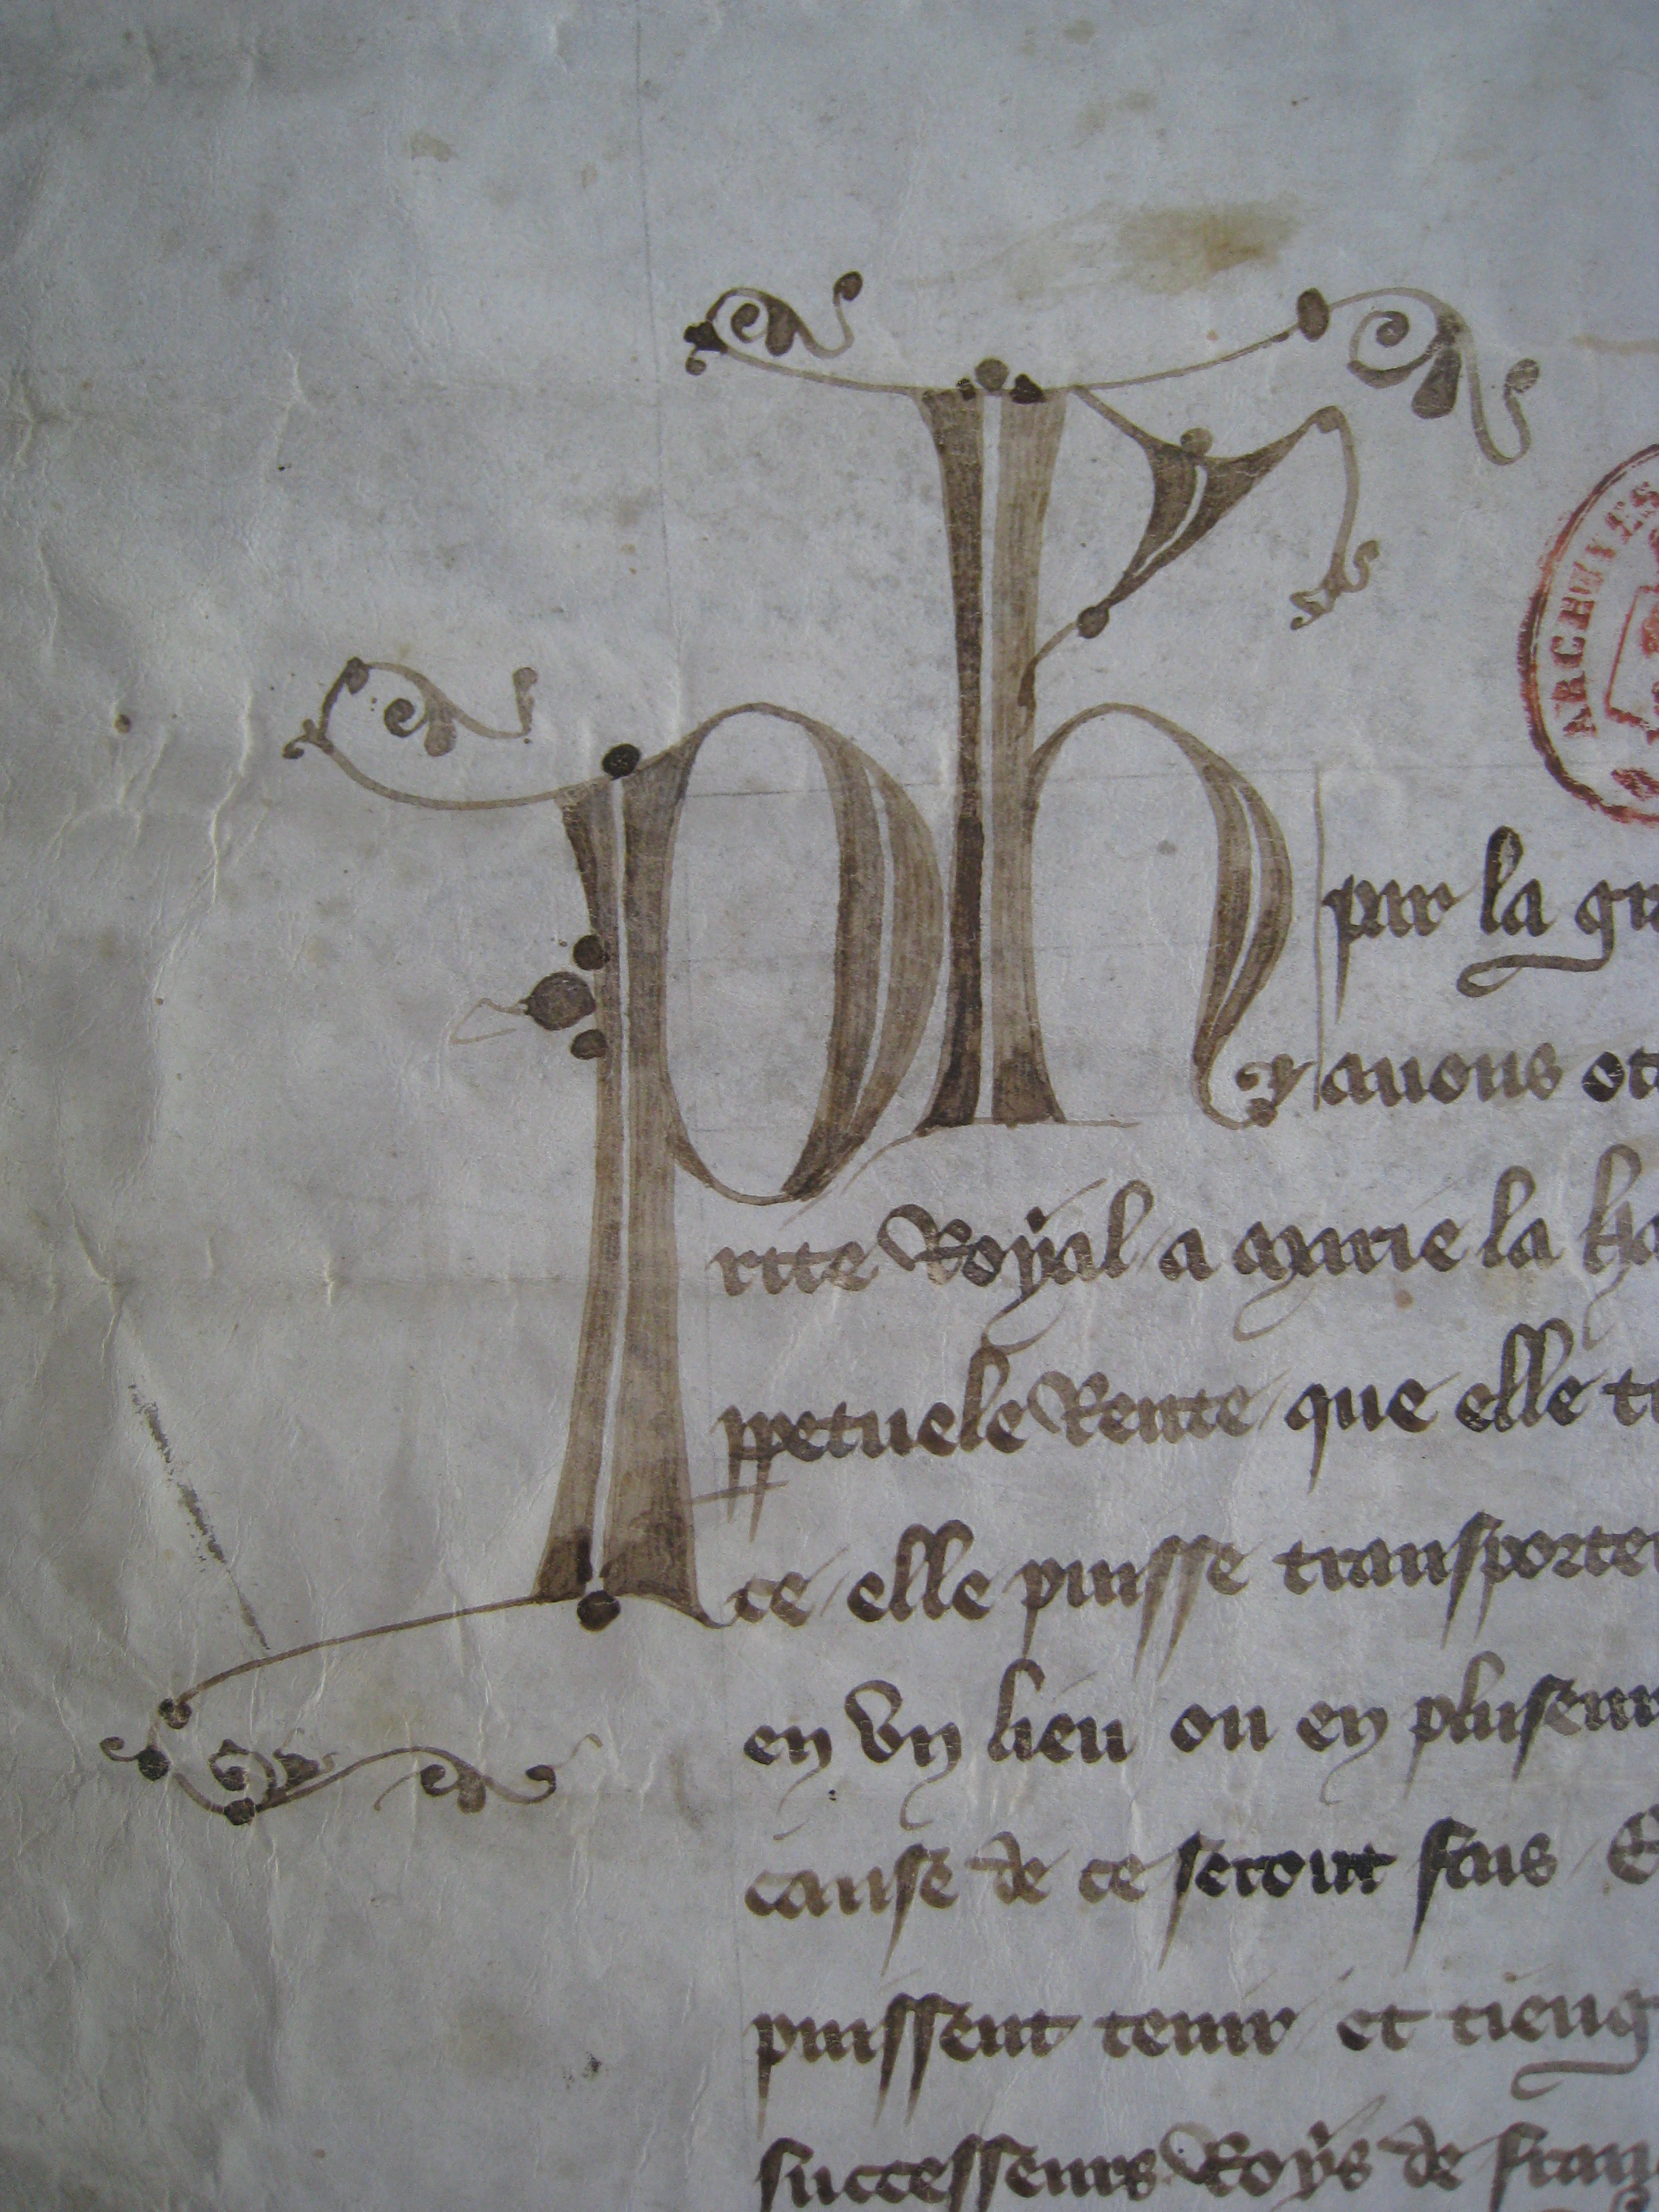 Ph
ARCHIVES
par la gr
y auons ot
rite Royal a Marie la
ppetuele Rente que elle
ce elle puisse transporter
en vn lieu ou en pluseur
cause de ce seront fais E
puissent tenir et tieng
successeurs Roys de fran